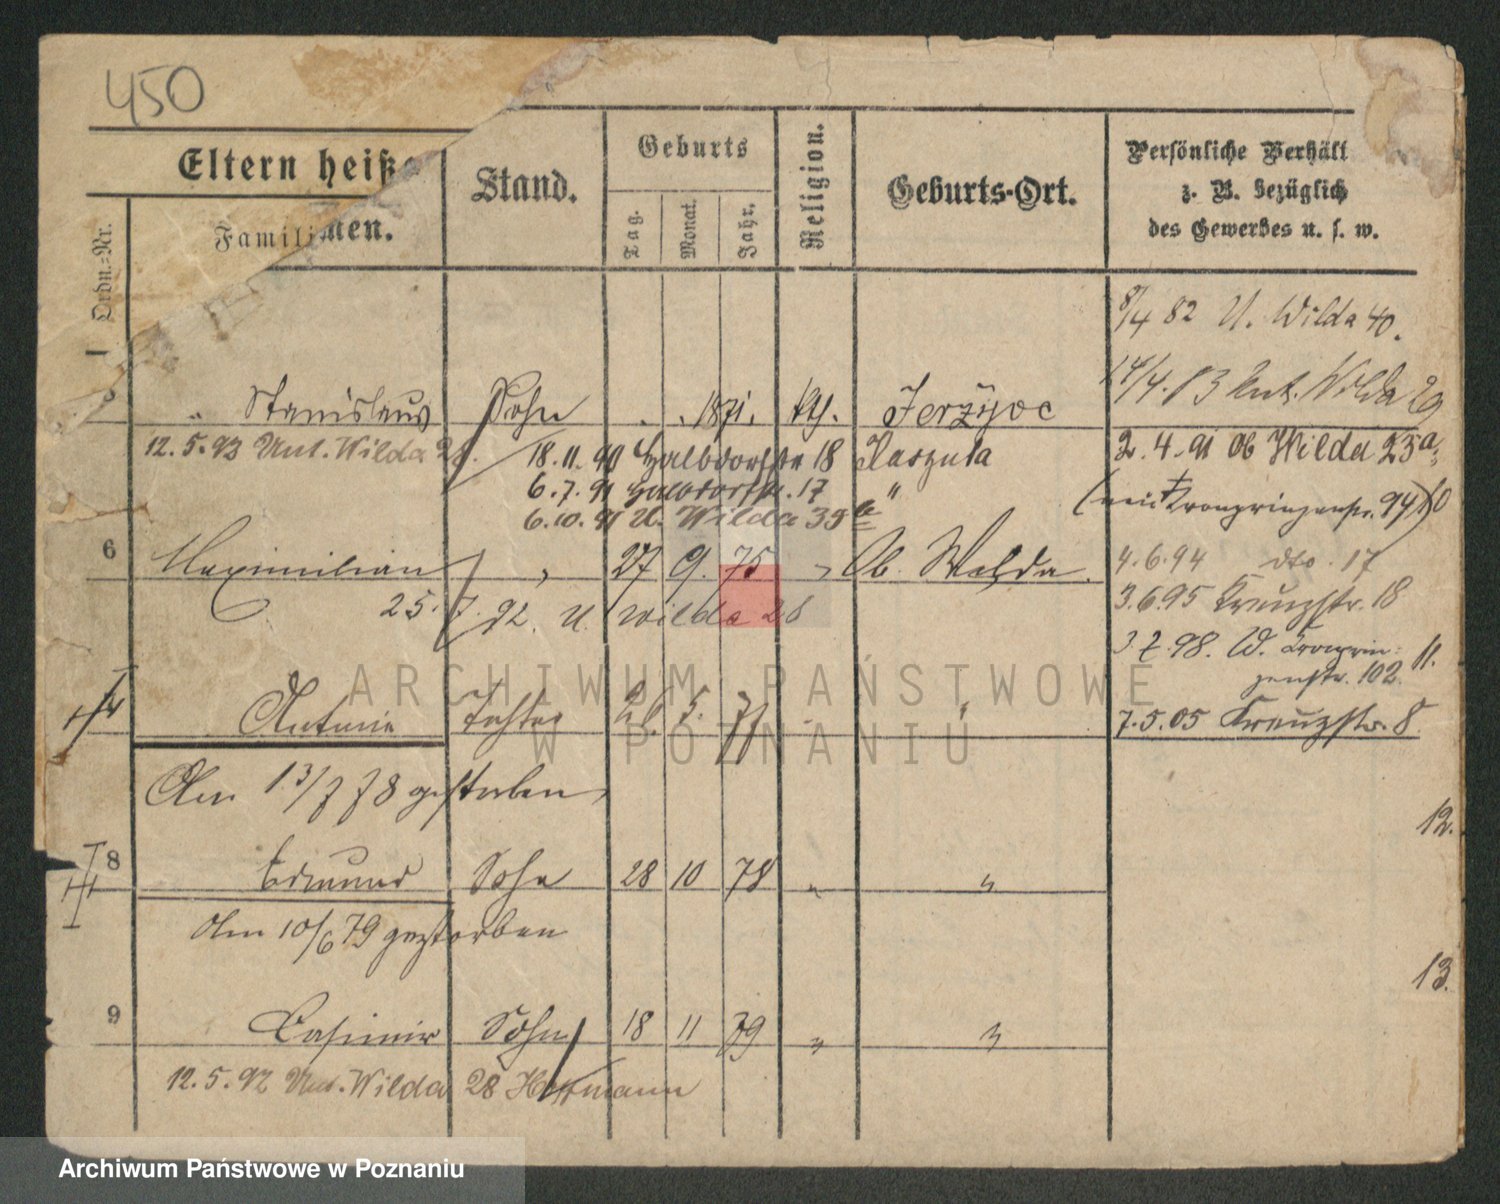 450
Eltern heiße
Stand.
Geburts
Religion.
Geburts-Ort.
Persönliche Verhält
z. B. bezüglich
des Gewerbes u. s. w.
Ordn.-Nr.
Famili
men.
Tag.
Monat.
Jahr.
8/4 82 U. Wilda 40.
14/4. 83 Unt. Wilda 29
" Stanislaus Sohn " " 1871. kth. Jerzyce
12.5.93 Unt. Wilda 18.11.90 Halbdorfstr 18 Kaszuba
2.4.91 Ob Wilda 23a
6.7.91 Halbdorfstr. 17 "
6.10.91 U. Wilda 39
Kronprinzenstr. 94
6 Maximilian " 27 9. 75 " Ob. Wilda.
4.6.94 dto. 17
25.7.92. U. Wilda 28
3.6.95 Kreuzstr. 18
98. W. Kronprin-
zenstr. 102. 11.
Antonie Tochter 5. "
7.5.05 Kreuzstr. 8
Am 13/7 78 gestorben
12.
8 Edmund Sohn 28 10 78 " "
Am 10/6 79 gestorben
13.
9 Casimir Sohn 18 11 79 " "
12.5.92 Unt. Wilda 28 Hoffmann
ARCHIWUM PAŃSTWOWE
W POZNANIU
Archiwum Państwowe w Poznaniu